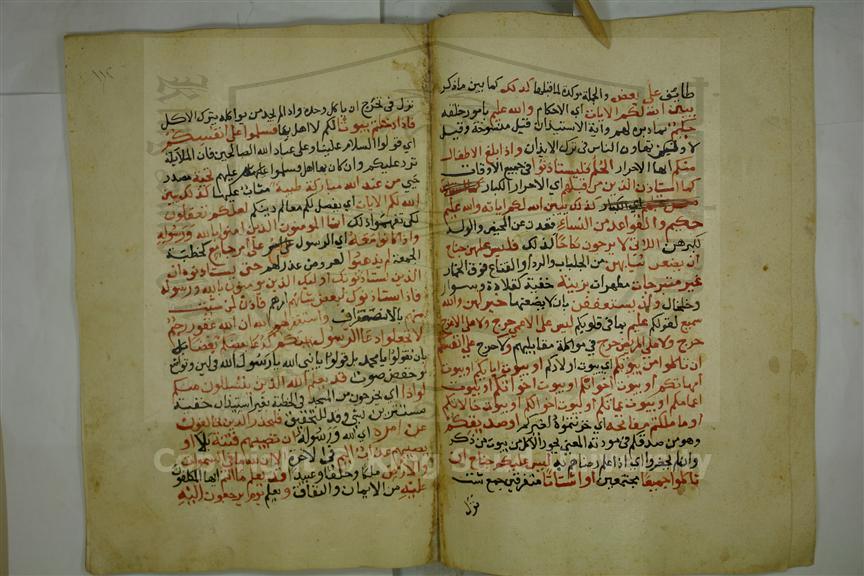 طائف على بعض والجملة مؤكدة لما قبلها كذلك كما بين ما ذكر
يبين الله لكم الايات اي الاحكام والله عليم بامور خلقه
حكيم بما دبره لهم واية الاستيذان قيل منسوخة وقيل
لا ولكن تهاون الناس في ترك الاستيذان واذا بلغ الاطفال
منكم ايها الاحرار الحلم فليستاذنوا في جميع الاوقات
كما استاذن الذين من قبلهم اي الاحرار الكبار
كذلك يبين الله لكم اياته والله عليم
حكيم والقواعد من النساء قعدن عن الحيض والولد
لكبرهن اللاتي لا يرجون نكاحا لذلك فليس عليهن جناح
ان يضعن ثيابهن من الجلباب والرداء والقناع فوق الخمار
غير متبرجات مظهرات بزينة خفية كقلادة وسوار
وخلخال وان يستعففن بان لا يضعنها خير لهن والله
سميع لقولكم عليم بما في قلوبكم ليس على الاعمى حرج ولا على الاعرج
حرج ولا على المريض حرج في مواكلة مقابليهم ولا حرج على انفسكم
ان تاكلوا من بيوتكم اي بيوت اولادكم او بيوت ابايكم او بيوت
امهاتكم او بيوت اخوانكم او بيوت اخواتكم او بيوت
اعمامكم او بيوت عماتكم او بيوت اخوالكم او بيوت خالاتكم
او ما ملكتم مفاتحه اي خزنتموه لغيركم او صديقكم
وهو من صدقكم في مودته المعنى يجوز الاكل من بيوت من ذكر
وان لم يحضروا اي اذا علم رضاهم به ليس عليكم جناح ان
تاكلوا جميعا مجتمعين او اشتاتا متفرقين جمع شت
نزل
١١٢
نزل في من تحرج ان ياكل وحده واذا لم يجد من يواكله يترك الاكل
فاذا دخلتم بيوتا لكم لا اهل بها فسلموا على انفسكم
اي قولوا السلام علينا وعلى عباد الله الصالحين فان الملائكة
ترد عليكم وان كان بها اهل فسلموا عليهم تحية مصدر
حيى من عند الله مباركة طيبة يثاب عليها كذلك يبين
الله لكم الايات اي يفصل لكم معالم دينكم لعلكم تعقلون
لكي تفهموا ذلك انما المومنون الذين امنوا بالله ورسوله
واذا كانوا معه اي الرسول على امر جامع كخطبة
الجمعة لم يذهبوا لعروض عذر لهم حتى يستاذنوه ان
الذين يستاذنونك اوليك الذين يومنون بالله ورسوله
فاذا استاذنوك لبعض شانهم امرهم فاذن لمن شيت
منهم بالانصراف واستغفر لهم الله ان الله غفور رحيم
لا تجعلوا دعا الرسول بينكم كدعا بعضكم بعضا
بان تقولوا يا محمد بل قولوا يا نبي الله يا رسول الله في لين وتواضع
وخفض صوت قد يعلم الله الذين يتسللون منكم
لواذا اي يخرجون من المسجد في الخطبة بغير استيذان خفية
مستترين بشي وقد للتحقيق فليحذر الذين يخالفون
عن امره اي الله ورسوله ان تصيبهم فتنة بلا او
يصيبهم عذاب اليم في الاخرة الا ان لله ما في السموات
والارض ملكا وخلقا وعبيدا قد يعلم ما انتم ايها المكلفون
عليه من الايمان والنفاق ويعلم يوم يرجعون اليه
Copyright © King Saud University